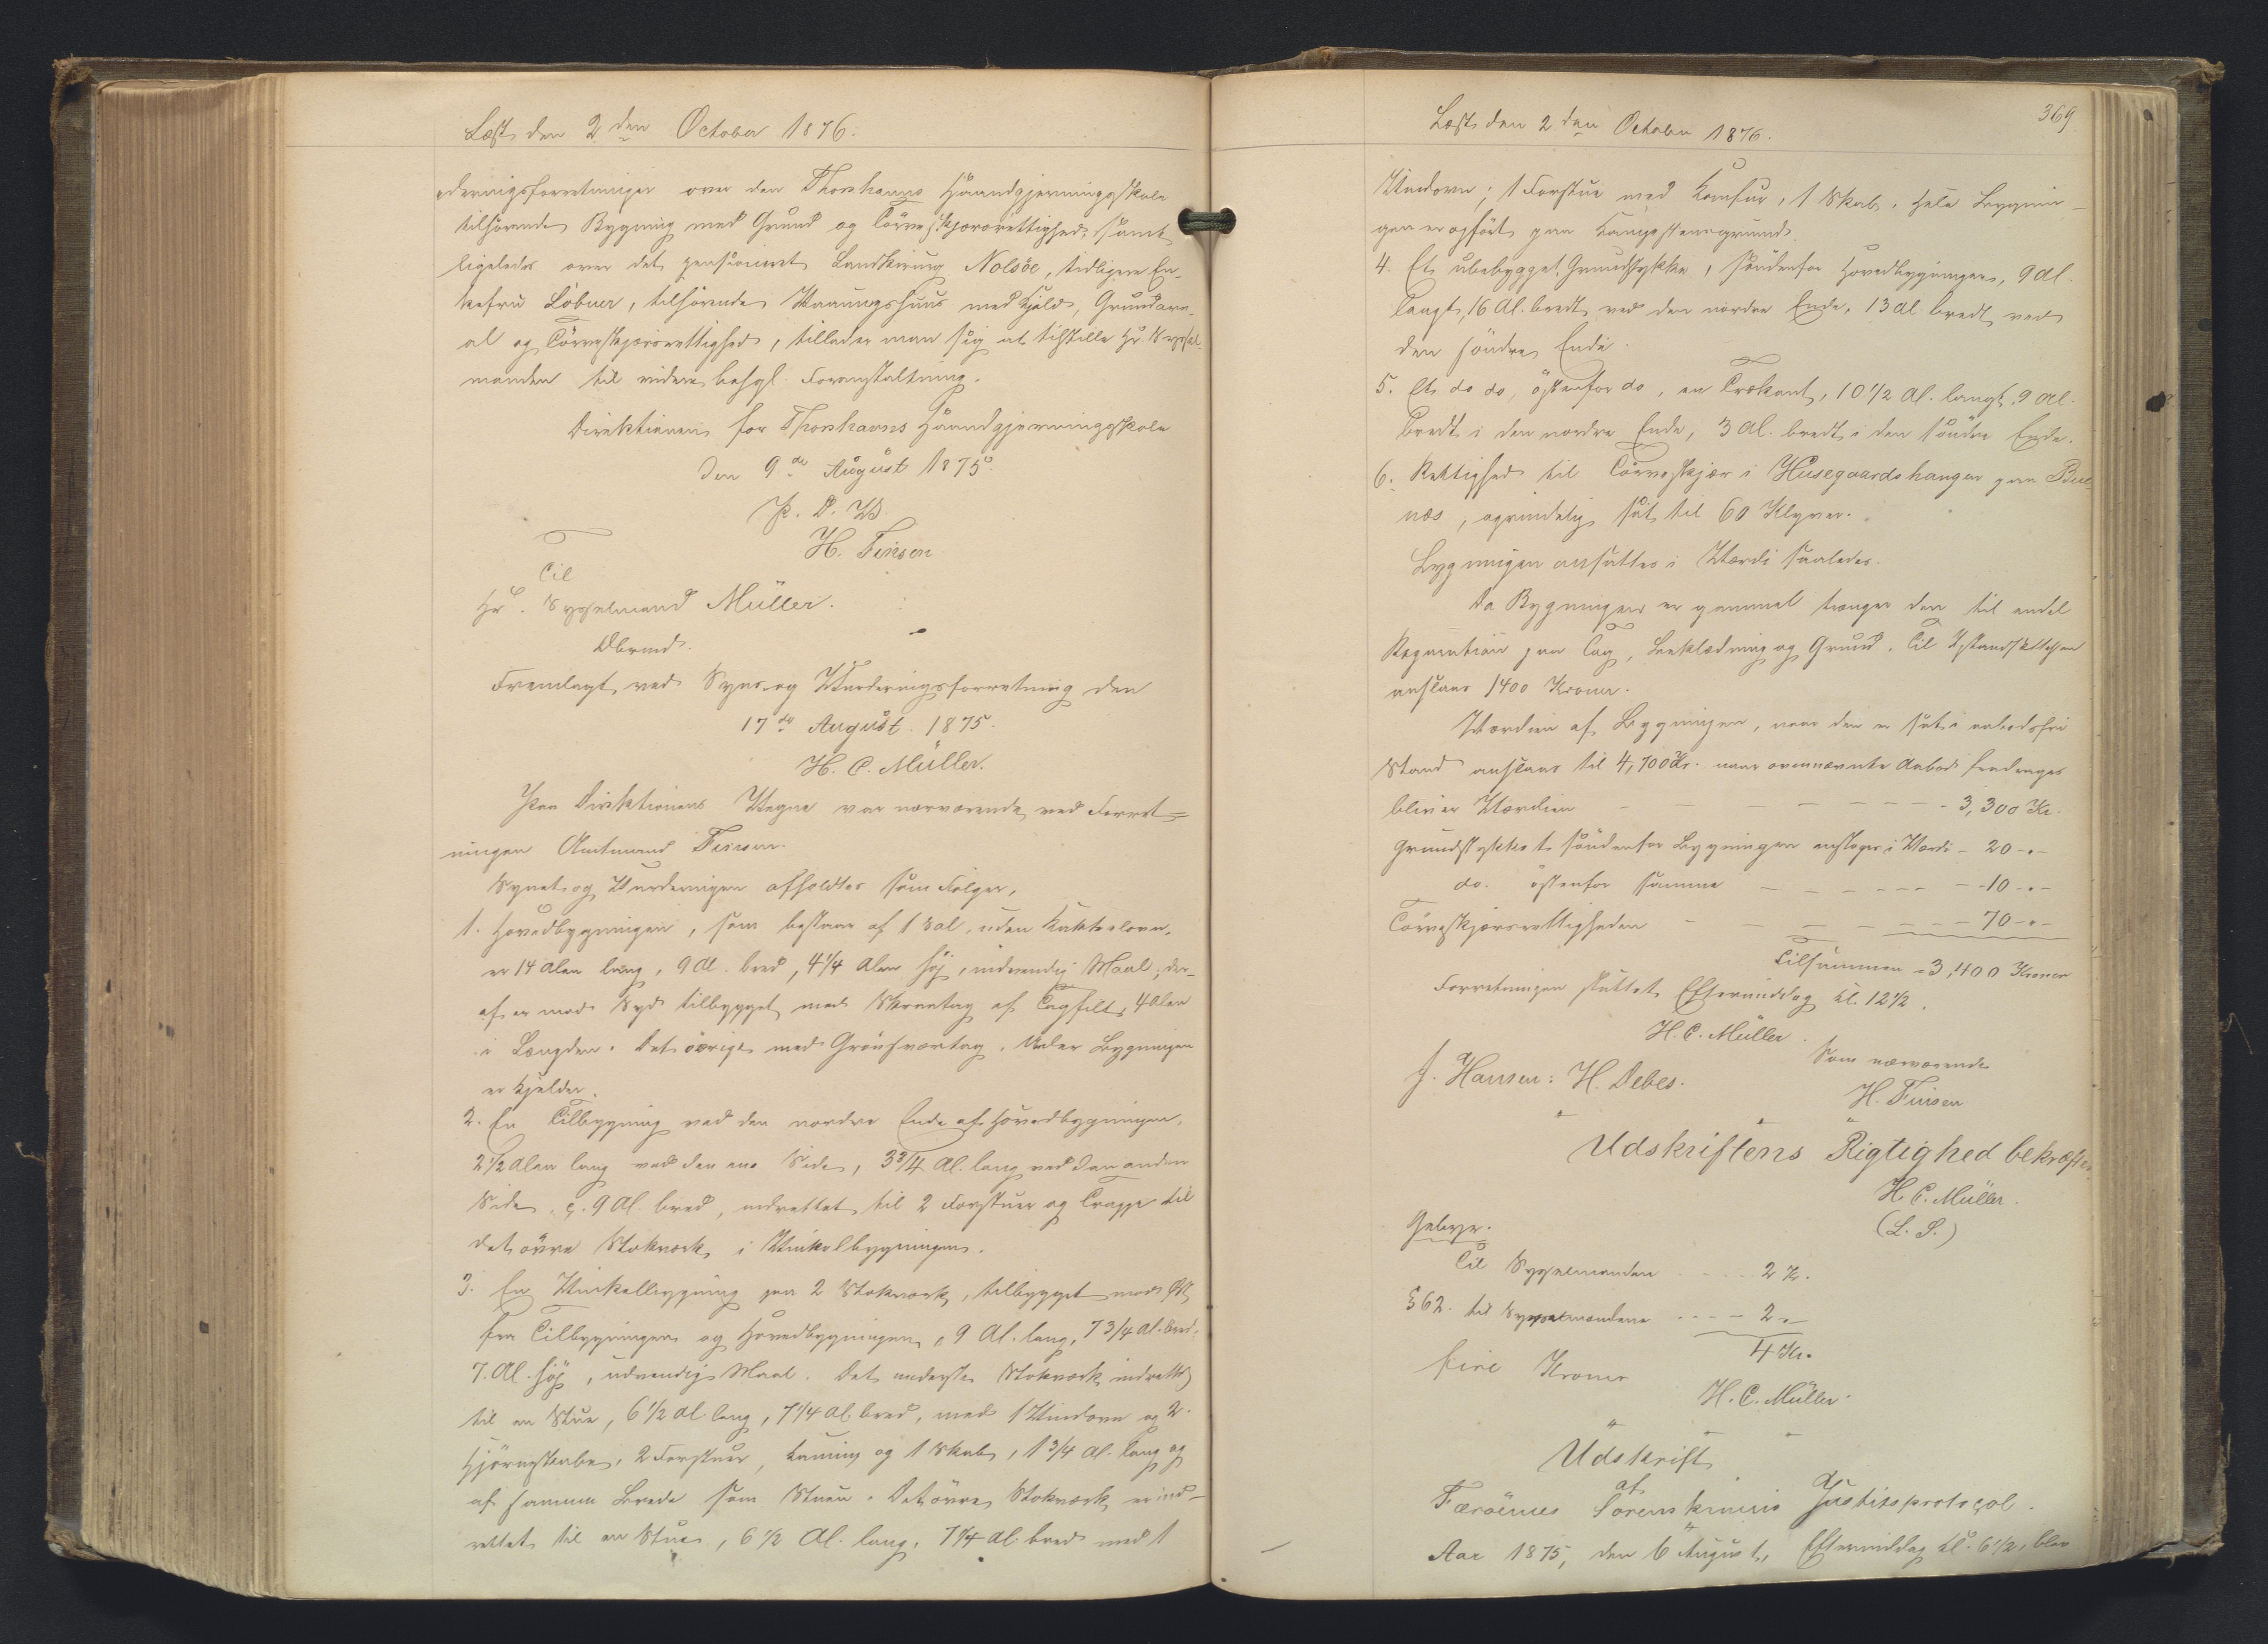 Læst den 2den October 1876.
deringsforretninger over den Thorshavns Haandgjerningsskole
tilhörende Bygning med Grund og Törveskjærsrettighed, samt
ligeledes over det pensioneret Landkirurg Nolsöe, tidligere En-
kefru Löbner, tilhörende Vaaningshuus med Kjeld, Grundare-
al og Törveskjærsrettighed, tillader man sig at tilstille Hr. Syssel-
manden til videre behgl. Foranstaltning.
Direktionen for Thorshavns Haandgjerningsskole
den 9de August 1875.
P. D. V.
H. Finsen
Til
Hr. Sysselmand Müller.
Fremlagt ved Syns- og Vurderingsforretning den
17de August 1875.
H. C. Müller.
Paa Direktionens Vegne var nærværende ved Forret-
ningen Amtmand Finsen.
Synet og Vurderingen afholdtes som følger,
1. Hovedbygningen, som bestaar af 1 Sal, uden Kakkelovn,
er 14 Alen lang, 9 Al. bred, 4 1/4 Alen höj, indvendig Maal; der-
af er mod Syd tilbygget med Skraatag af Tagfilt, 4 Alen
i Længden. Det övrige med Grönsværtag. Under Bygningen
er Kjelder.
2. En Tilbygning ved den nordre Ende af Hovedbygningen,
2 1/2 Alen lang ved den ene Side, 3 3/4 Al. lang ved den anden
Side, c. 9 Al. bred, indrettet til 2 Forstuer og Trappe til
det övre Stokværk i Vinkelbygningen.
3. En Vinkelbygning paa 2 Stokværk, tilbygget mod Öst
fra Tilbygningen og Hovedbygningen, 9 Al. lang, 7 3/4 Al. bred,
7. Al. höj, udvendig Maal. Det underste Stokværk indrettet
til en Stue, 6 1/2 Al. lang, 7 1/4 Al. bred, med 1 Vindovn og 2
Hjörneskabe, 2 Forstuer, og 1 Skab, 1 3/4 Al. lang og
af samme Brede som Stuen. Det övre Stokværk er ind-
rettet til en Stue, 6 1/2 Al. lang, 7 1/4 Al. bred med 1
369
Læst den 2den October 1876.
Vindovn; 1 Forstue med Komfur, 1 Skab. Hele Bygnin-
gen er opfört paa Kampesteensgrund.
4. Et ubebygget Grundstykke, söndenfor Hovedbygningen, 9 Al.
langt, 16 Al. bredt ved den nordre Ende, 13 Al. bredt ved
den söndre Ende.
5. Et do do, östenfor do, en Trekant, 10 1/2 Al. langt, 9 Al.
bredt i den nordre Ende, 3 Al. bredt i den söndre Ende.
6. Rettighed til Törveskjær i Husegaardshaugen paa
næs, oprindelig sat til 60 Klyver.
Bygningen ansættes i Værdi saaledes.
Da Bygningen er gammel trænger den til endel
Reparation paa Tag, Beklædning og Grund. Til Istandsættelsen
anslaaes 1400 Kroner.
Værdien af Bygningen, naar den er sat i aabodsfri
Stand anslaaes til 4,700 Kr. naar ovennævnte Aabod fradrages
bliver Værdien - - - - - - 3,300 Kr.
Grundstykket söndenfor Bygningen ansloges i Værdi - 20 - " -
do. östenfor samme - - - - - - - 10 - " -
Törveskjærsrettigheden - - - - - - 70 - " -
Tilsammen = 3,400 Kroner
Forretningen sluttet Eftermiddag Kl. 12 1/2.
H. C. Müller.
Som nærværende
J. Hansen: H. Debes.
H. Finsen
Udskriftens Rigtighed bekræftes
H. C. Müller.
(L. S.)
Gebyr.
Til Sysselmanden - - - - 2 Kr.
§ 62. til - - - - 2 " -
4 Kr.
fire Kroner
H. C. Müller.
Udskrift
af
Færöernes Sorenskriveris Justitsprotocol.
Aar 1875, den 6 August, Eftermiddag Kl. 6 1/2, blev